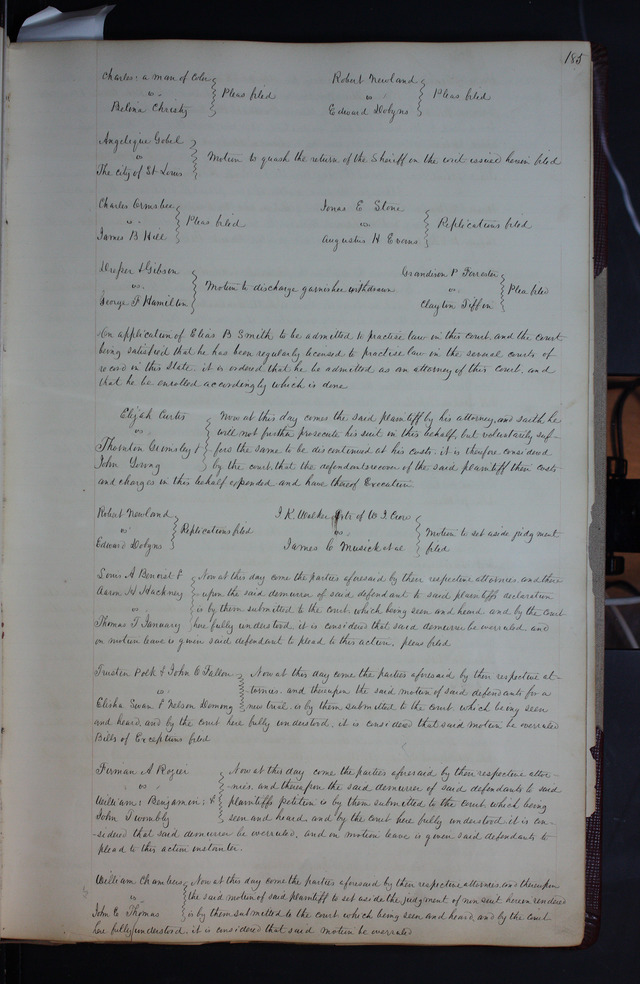 185
Charles, a man of Color
vs.
Belina Christy
Pleas filed
Robert Newland
vs
Edward Dobyns
Pleas filed
Angelique Gobel
vs
The City of St. Louis
Motion to quash the return of the Sheriff on the writ issued herein filed
Charles Ormsbee
vs.
James B Hill
Pleas filed
Jonas E Stone
vs.
Augustus H Evans
Replications filed
Draper & Gibson
vs.
George F Hamilton
Motion to discharge garnishee withdrawn
Grandison P. Forrester
vs.
Clayton Tiffin
Plea filed
On application of Elias B Smith to be admitted to practise law in this court and the court
being satisfied that he has been regularly licensed to practise law in the several courts of
record in this State it is ordered that he be admitted as an attorney of this Court, and
that he be enrolled accordingly which is done
Elijah Curtis
vs.
Thornton Grimsley &
John Young
Now at this day comes the said plaintiff by his attorney, and saith he
will not further prosecute his suit in this behalf, but voluntarily suf-
fers the same to be discontinued at his costs. it is therefore considered
by the court, that the defendants recover of the said plaintiff their costs
and charges in this behalf expended and have thereof Execution
Robert Newland
vs
Edward Dobyns
Replications filed
J. K. Walker of W. J.
vs.
James C Musick et al
Motion to set aside judgment
filed
Louis A Benoist &
Aaron H Hackney
vs
Thomas T January
Now at this day come the parties aforesaid by their respective attornies and there
upon the said demurrer of said defendant to said plaintiffs declaration
is by them submitted to the court, which being seen and heard and by the Court
here fully understood it is considered that said demurrer be overruled and
on motion leave is given said defendant to plead to this action, pleas filed
Trusten Polk & John C Fallon
vs.
Elisha Swan & Nelson
Now at this day come the parties aforesaid by their respective at-
tornies, and thereupon the said motion of said defendants for a
new trial, is by them submitted to the court, which being seen
and heard, and by the court here fully understood, it is considered that said motion be overruled
Bills of Exceptions filed
Firman A Rozier
vs
William, Benjamin, &
John Twombly
Now at this day come the parties aforesaid by their respective attor-
nies, and thereupon the said demurrer of said defendants to said
plaintiffs petition is by them submitted to the court which being
seen and heard and by the court here fully understood it is con-
-sidered that said demurrer be overruled, and on motion leave is given said defendants to
plead to this action instanter.
William Chambers
vs
John C Thomas
Now at this day come the parties aforesaid by their respective attornies, and thereupon
the said motion of said plaintiff to set aside the judgment of non suit herein rendered
is by them submitted to the court which being seen and heard, and by the court
here fully understood, it is considered that said motion be overruled